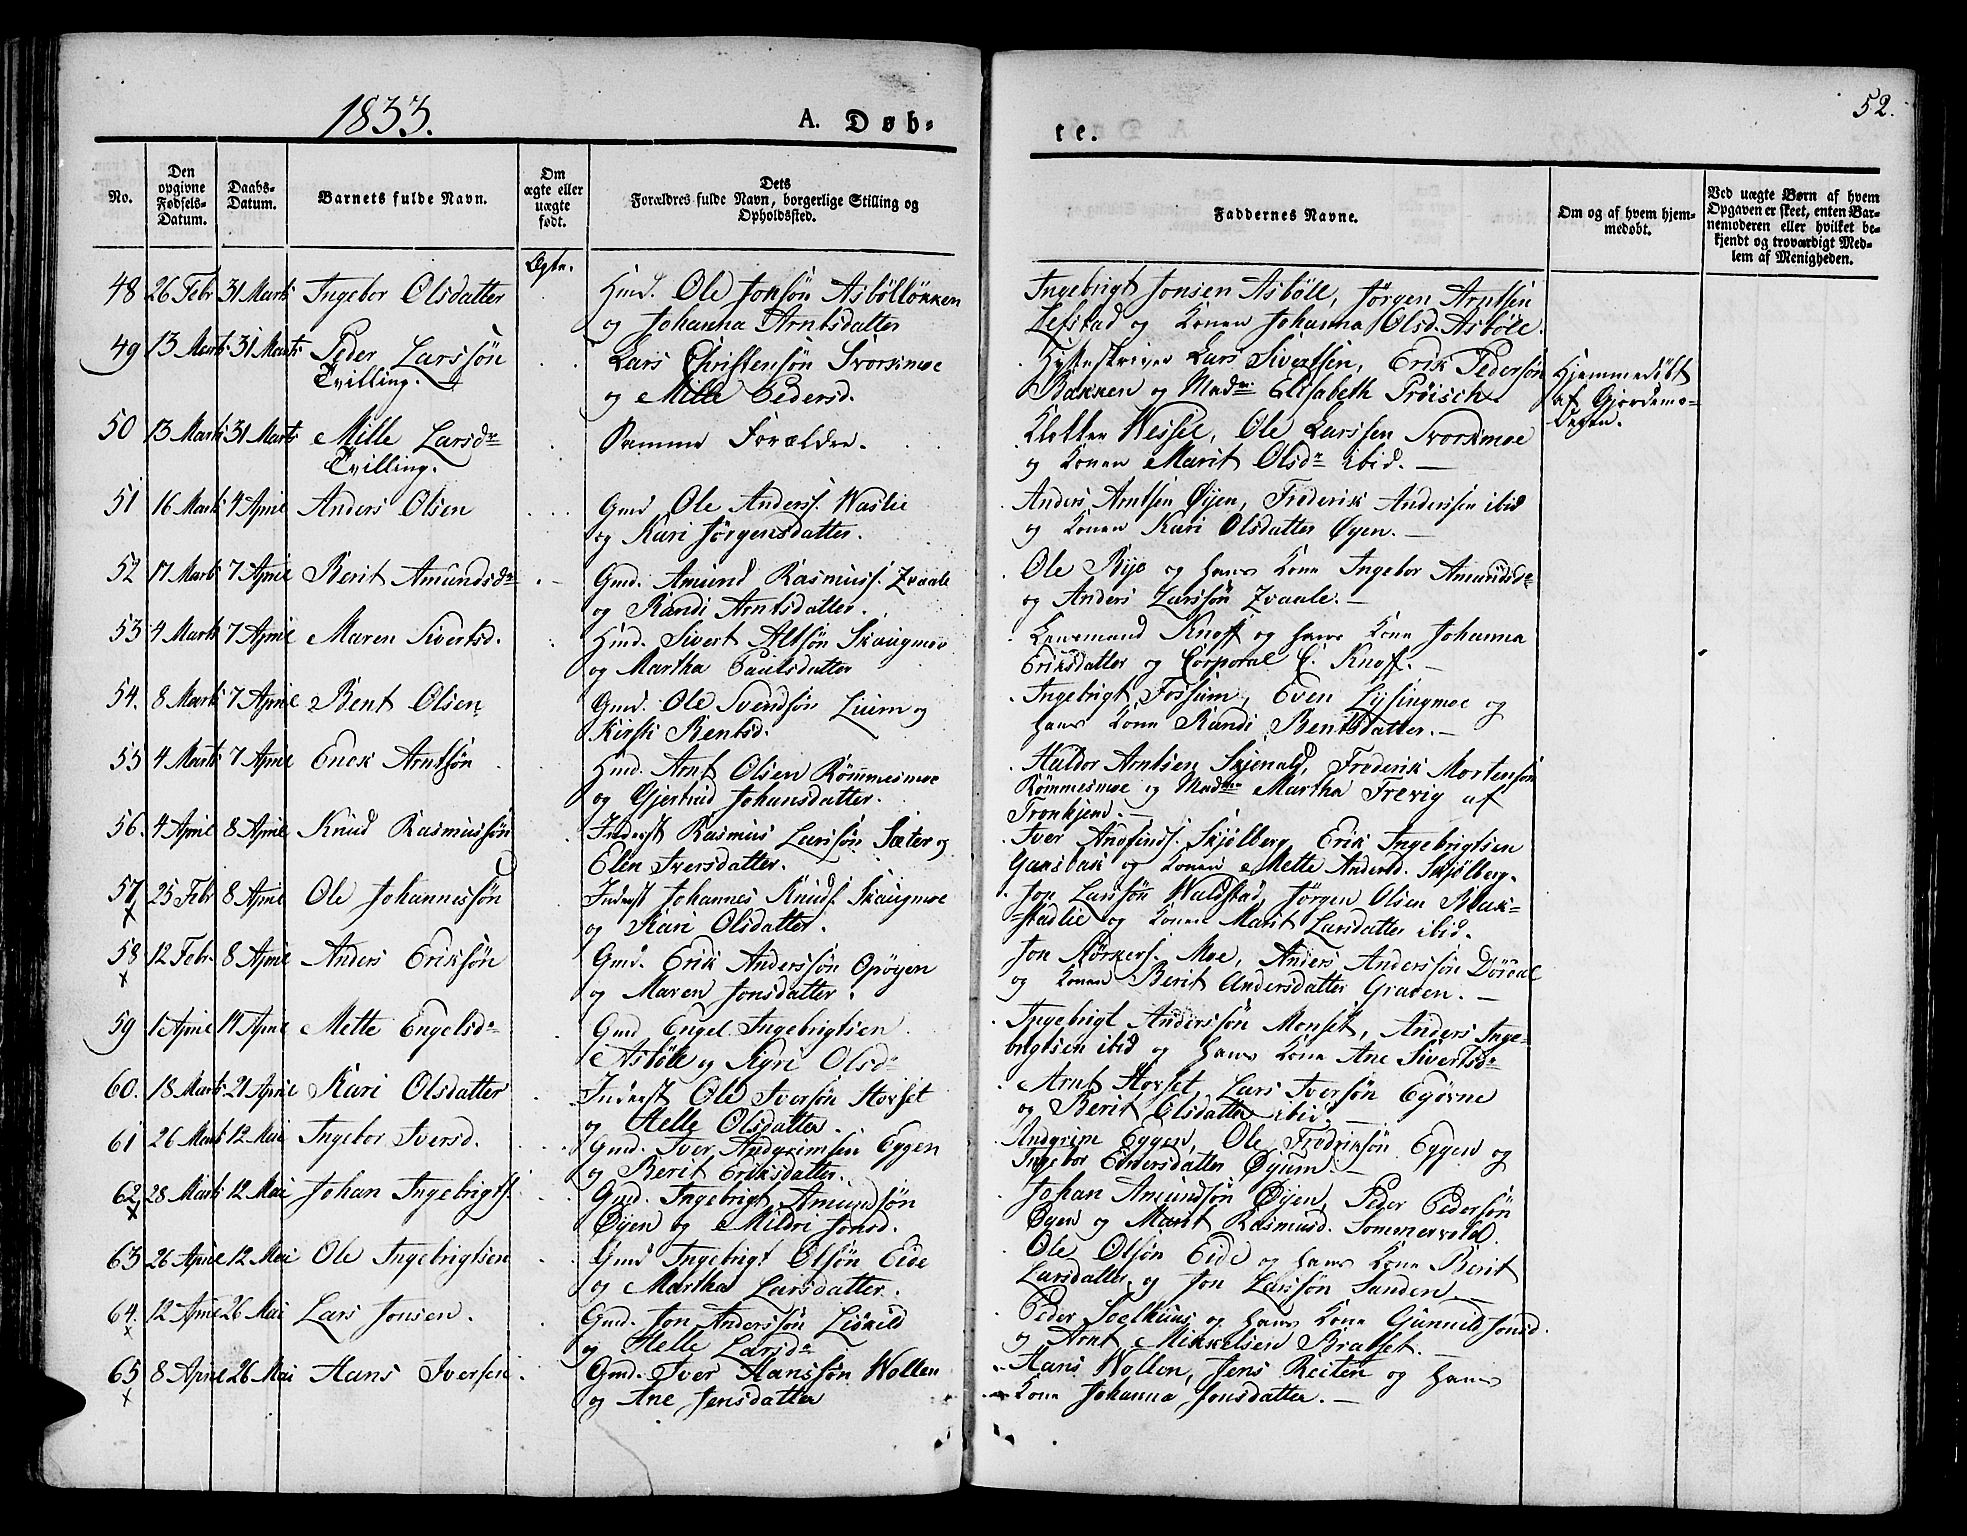 1833.
A. Døb-
te.
52.
No.
Den opgivne Fødsels-Datum.
Daabs-Datum.
Barnets fulde Navn.
Om ægte eller uægte født.
Dets Forældres fulde Navn, borgerlige Stilling og Opholdssted.
Faddernes Navne.
Om og af hvem hjem-medøbt.
Ved uægte Børn af hvem Opgaven er skeet, enten Bar-nemoderen eller hvilket be-kjendt og troværdigt Med-lem af Menigheden.
Ægte.
48 26 Febr 31 Marts Ingebor Olsdatter
Hmd. Ole Jonsön Asböllökken
og Johanna Arntsdatter
Ingebrigt Jonsen Asböle, Jörgen Arntsen
Lefstad og Konen Johanna Olsd. Asböle.
49 13 Marts 31 Marts Peder Larssön
Tvilling.
Lars Christensön Svorkmoe
og Mille Pedersd.
Hytteskriver Lars Sivertsen, Erik Pedersön
Bakken og Madm. Elisabeth Pröisch
Hjemmedöbt
af Gjordemo-
deren.
50 13 Marts 31 Marts Mille Larsdr
Tvilling.
Samme Forældre.
Wessel, Ole Larssen Svorkmoe
og Konen Marit Olsdr ibid.
51 16 Marts 4 April Anders Olsen
Gmd Ole Anderss. Waslie
og Kari Jörgensdatter.
Anders Arntsen Öyen, Frederik Anderssen ibid
og Konen Kari Olsdatter Öyen.
52 17 Marts 7 April Berit Amundsdr
Gmd. Amund Rasmuss. Qvaale
og Randi Arntsdatter.
Ole Rye og hans Kone Ingebor Amundsdr
og Anders Larssön Qvaale.
53 4 Marts 7 April Maren Sivertsd.
Hmd. Sivert Altsön Skaugmoe
og Martha Paulsdatter
Lensmand Knoff og hans Kone Johanna
Eriksdatter og Corporal C. Knoff.
54. 8 Marts 7 April Bent Olsen
Gmd. Ole Svendsön Lium og
Kirsti Bentsd.
Ingebrigt Fossum, Even Lysingmoe og
hans Kone Randi Bentsdatter.
55 4 Marts 7 April Erick Arntsön
Hmd. Arnt Olsen Römmesmoe
og Gjertrud Johansdatter.
Haldor Arntsen Skjenald, Frederik Mortensön
Römmesmoe og Madme Martha Trevig af
Tronhjem.
56. 4 April 8 April Knud Rasmussön
Inderst Rasmus Larssön Sæter og
Elen Iversdatter.
Iver Angfinds. Skjölberg, Erik Ingebrigtsen
Gaasbak og Konen Mette Andersd. Skjölberg.
57 25 Febr 8 April Ole Johannessön
Inderst Johannes Knuds. Skaugmoe
og Kari Olsdatter.
Jon Larssön Waldstad, Jörgen Olsen Blak-
stadlie og Konen Marit Larsdatter ibid.
58 12 Febr. 8 April Anders Eriksön
Gmd. Erik Anderssön Opöyen
og Maren Jonsdatter.
Jon Störkers. Moe, Anders Anderssön Döedal
og Konen Berit Andersdatter Graven.
59 1 April 14 April Mette Engelsdr
Gmd Engel Ingebrigtsen
Asböle og Sigri Olsdr
Ingebrigt Anderssön Monset, Anders Inge-
brigtsen ibid og hans Kone Ane Sivertsdr
60. 18 Marts 21 April Kari Olsdatter
Inderst Ole Iversön Storset
og Helle Olsdatter.
Arnt Storset, Lars Iversön Egövne
og Berit Olsdatter ibid.
61 26 Marts 12 Mai Ingebor Iversd.
Gmd. Iver Andgrimsen Eggen
og Berit Eriksdatter.
Andgrim Eggen, Ole Fredriksön Eggen og
Ingebor Einersdatter Öyum.
62 28 Marts 12 Mai Johan Ingebrigts.
x
Gmd. Ingebrigt Amundsön
Öyen og Mildri Jonsd.
Johan Amundsön Öyen, Peder Pedersön
Öyen og Marit Rasmusd. Sommervold.
63 26 April 12 Mai Ole Ingebrigtsen
Gmd Ingebrigt Olsön Eide
og Martha Larsdatter.
Ole Olsön Eide og hans Kone Berit
Larsdatter og Jon Larssön Sanden.
64. 12 April 26 Mai Lars Jonsen.
x
Gmd. Jon Anderssön Liskild
og Helle Larsdr
Peder Soelhuus og hans Kone Gunnild Jonsd.
og Arnt Mikkelsen Bratset.
65 8 April 26 Mai Hans Iversen.
x
Gmd. Iver Hanssön Wollen
og Ane Jensdatter
Hans Wollen, Jens Reiten og hans
Kone Johanna Jonsdatter.